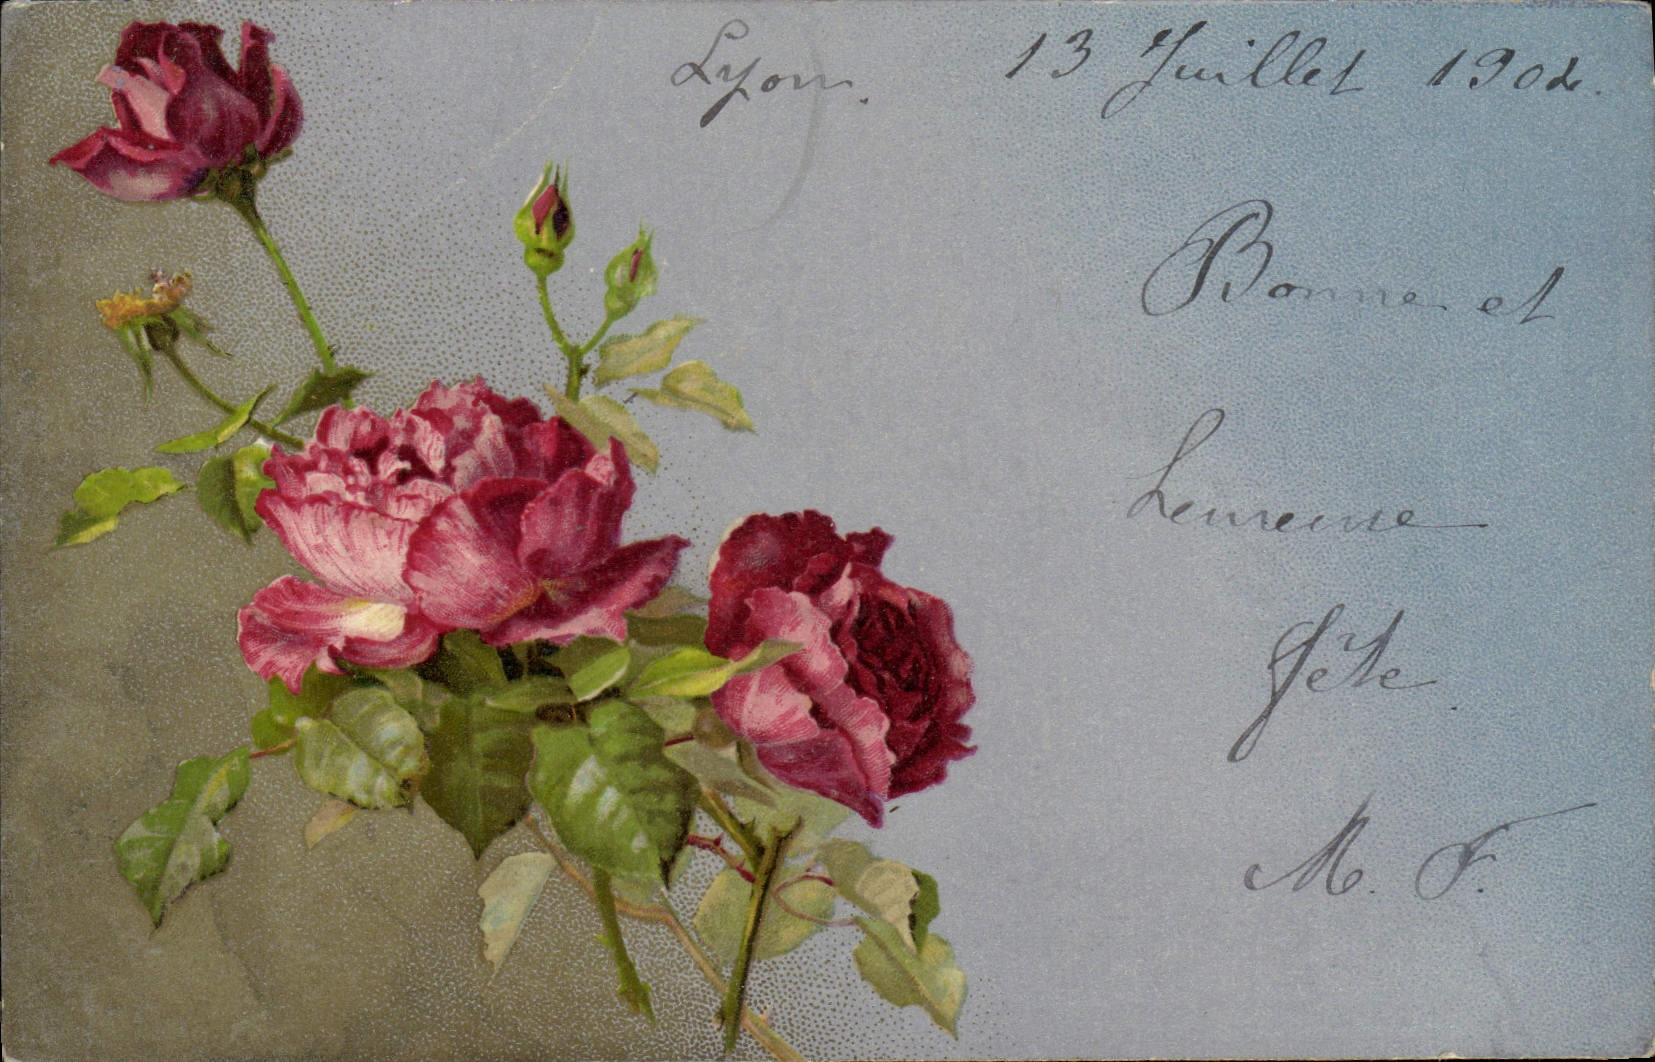 Lyon. 13 Juillet 1904.
Bonne et
heureuse
fête
M. F.